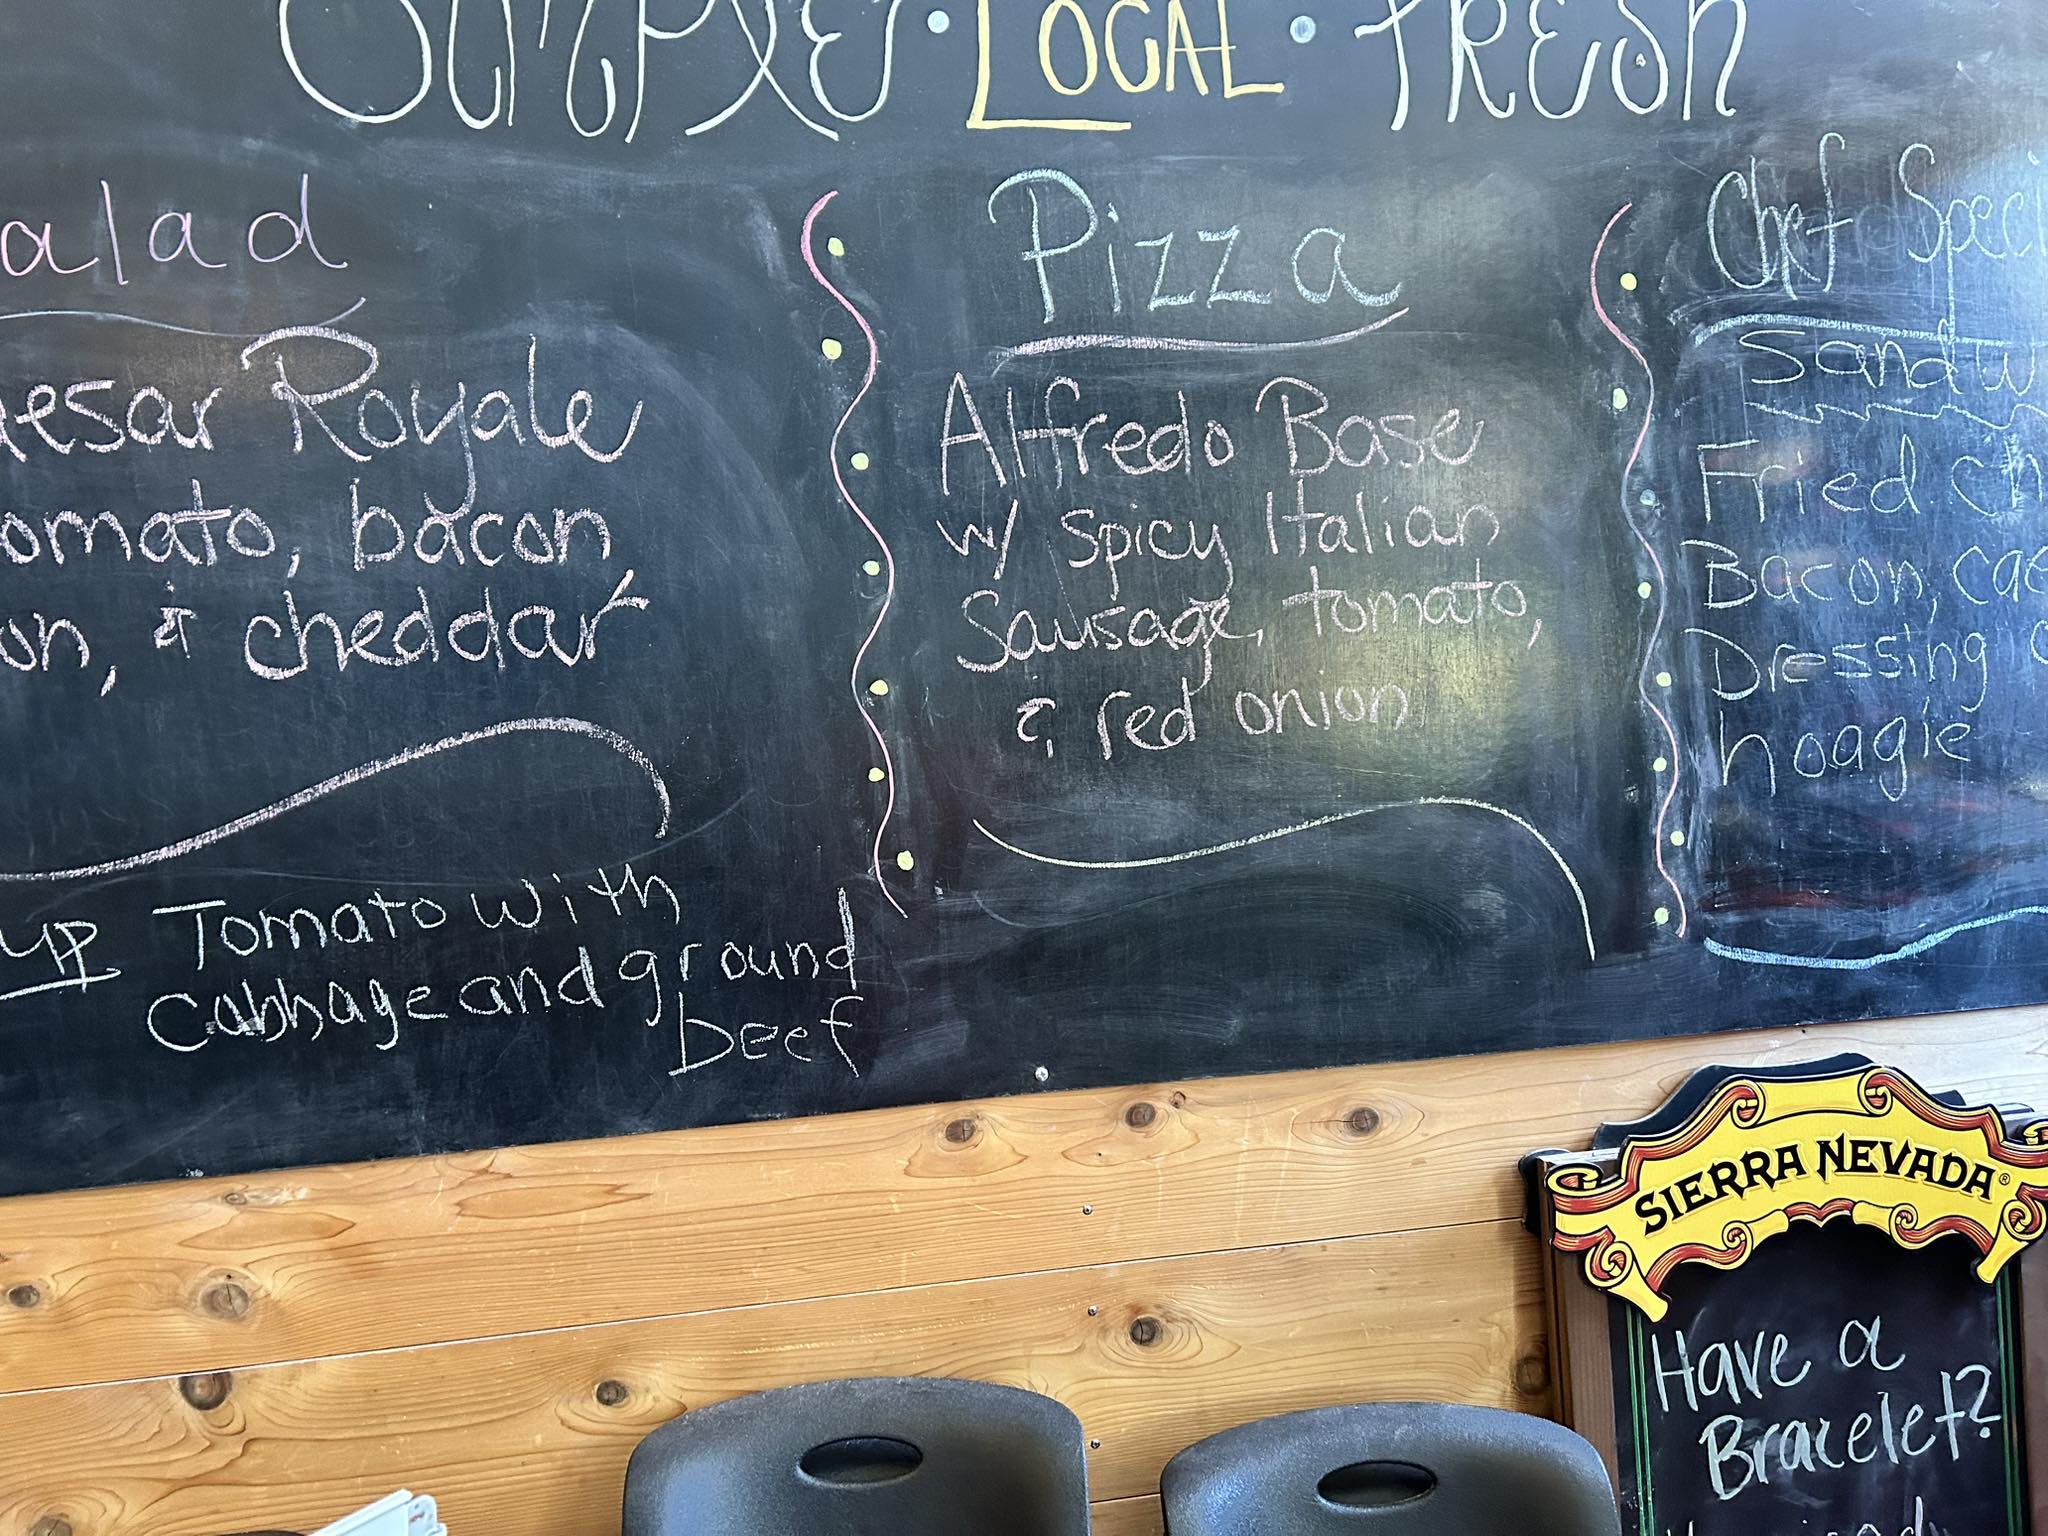 SIMPLE · LOCAL · FRESH
alad
aesar Royale
omato, bacon
on, & cheddar
up Tomato with
cabbage and ground
beef
Pizza
Alfredo Base
w/ Spicy Italian
Sausage, tomato,
& red onion
Chef Speci
Sandw
Fried ch
Bacon, cae
Dressing
hoagie
SIERRA NEVADA®
Have a
Bracelet?